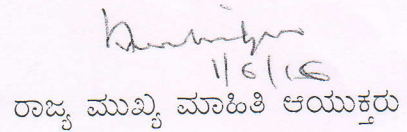 1/6/16
ರಾಜ್ಯ ಮುಖ್ಯ ಮಾಹಿತಿ ಆಯುಕ್ತರು